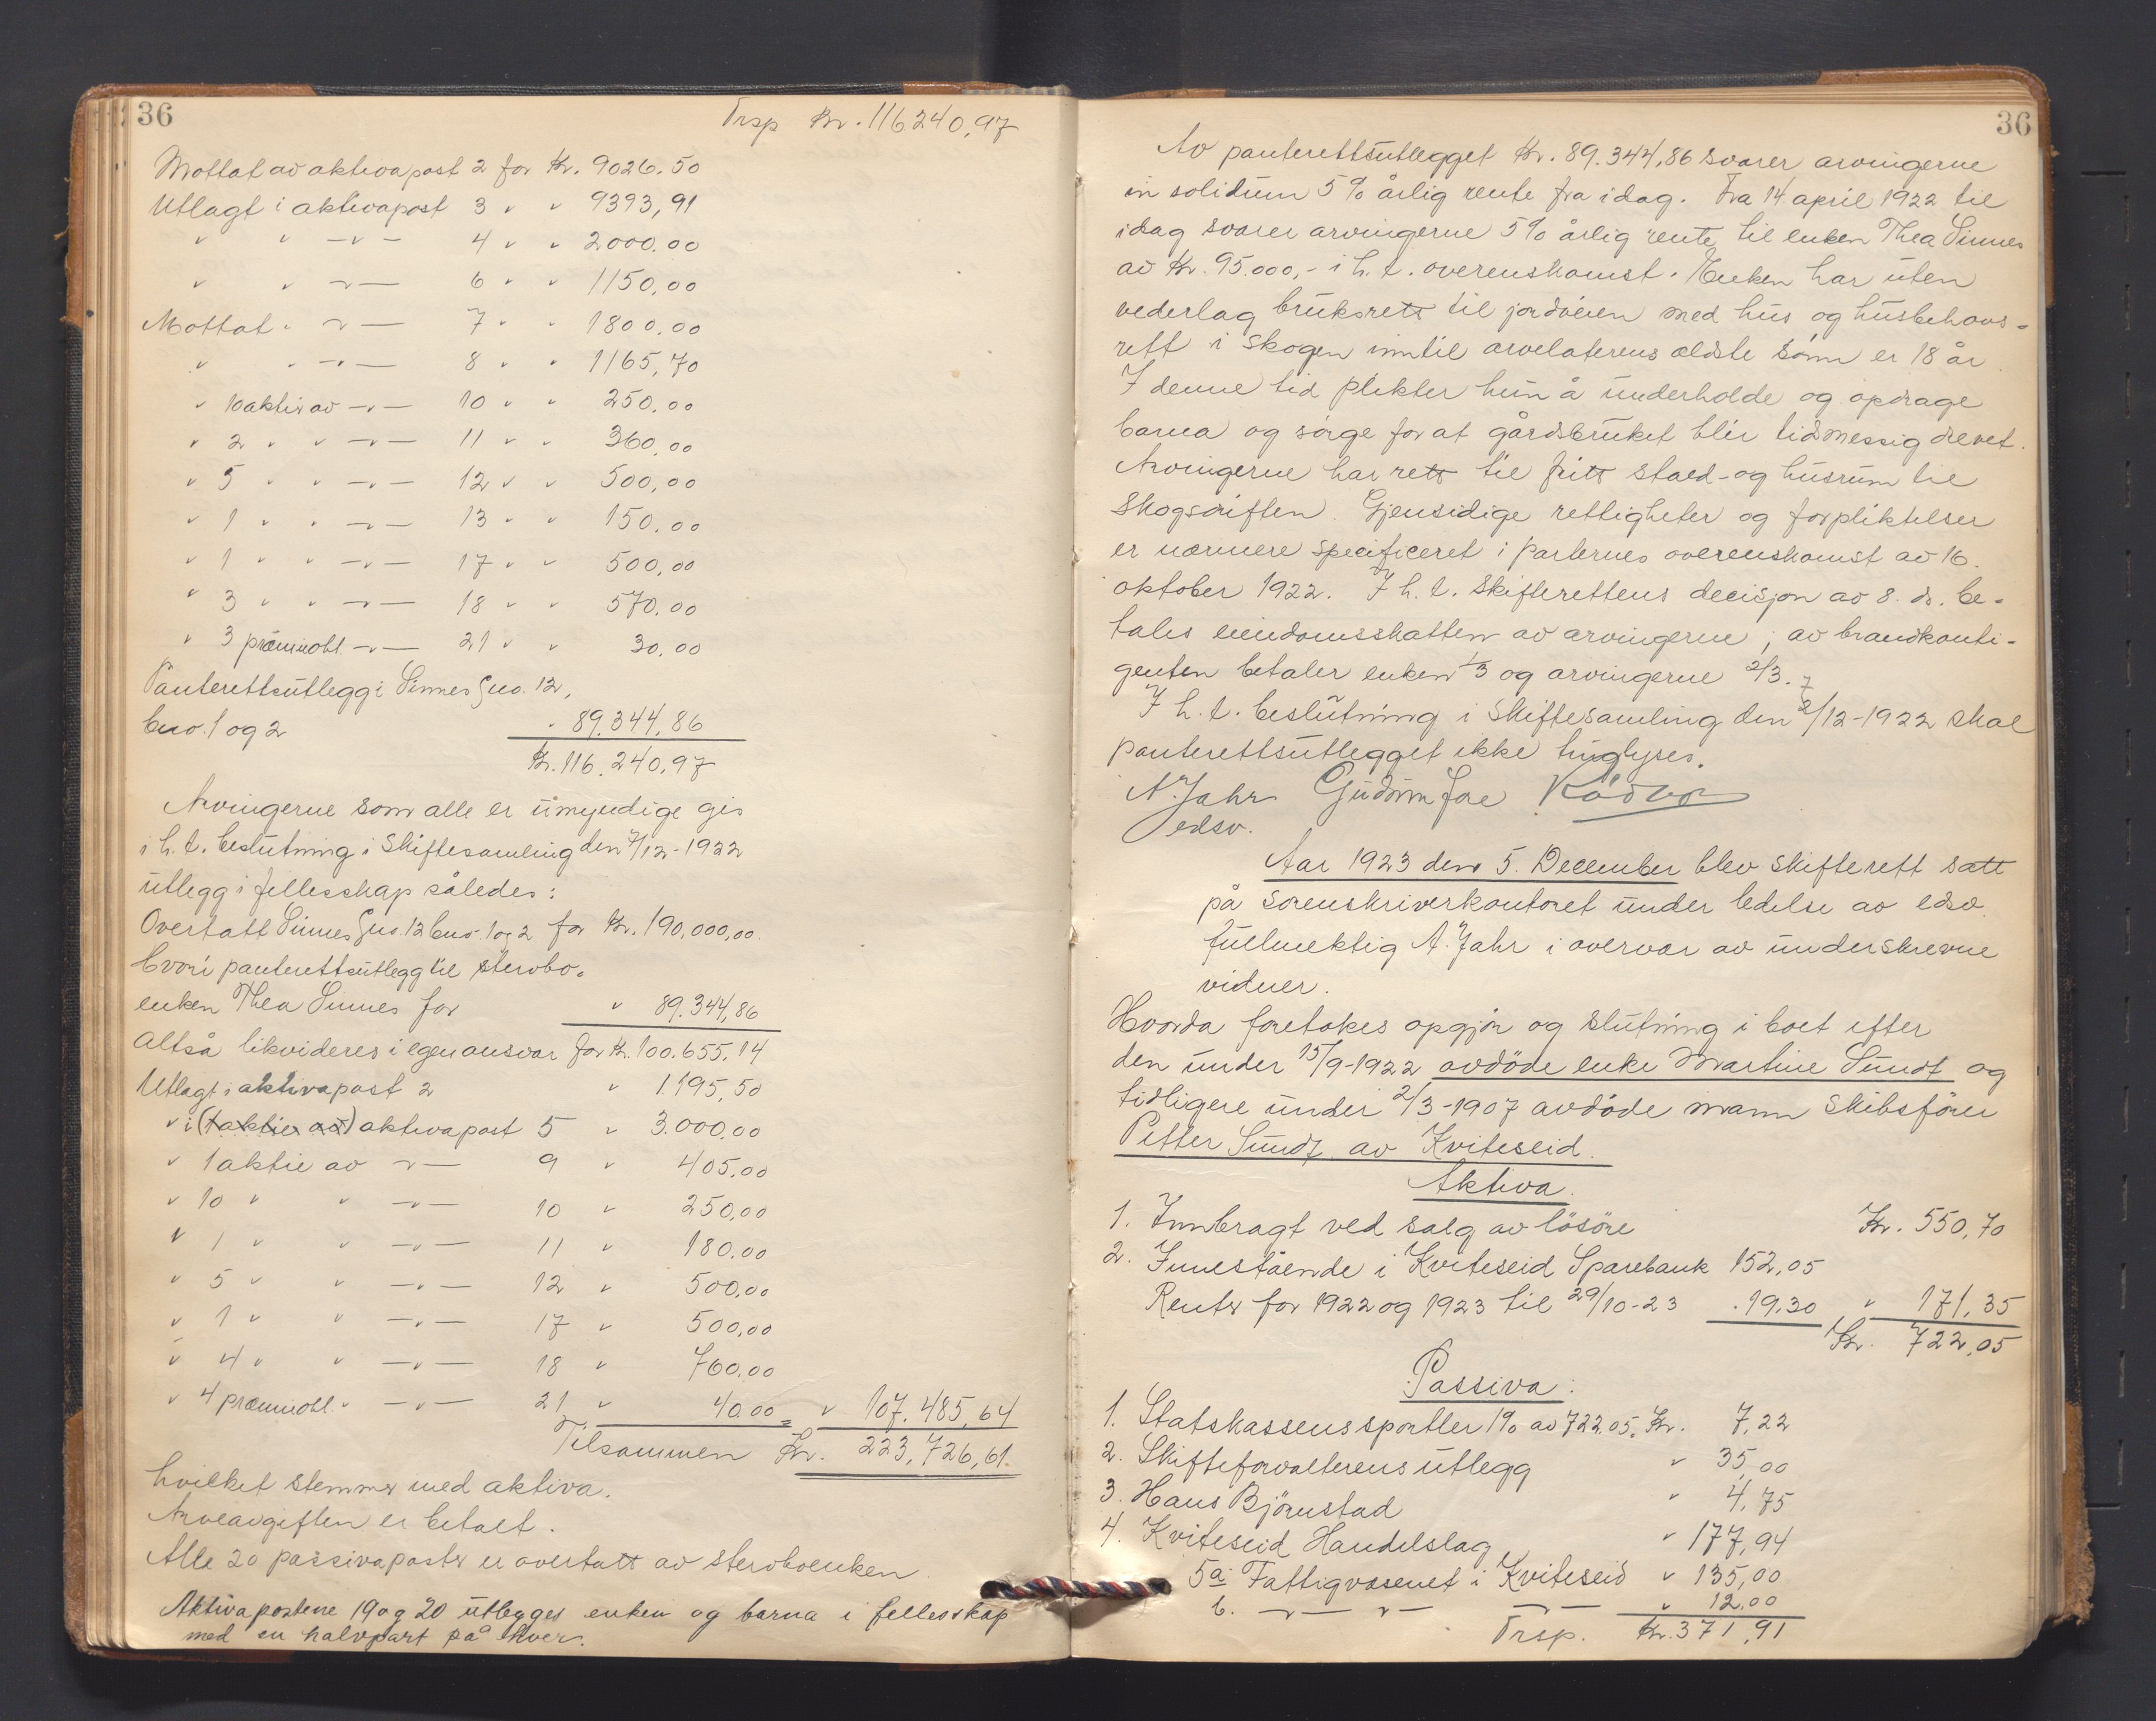 36
Trsp Kr. 116.240,97
Mottat av aktivapost 2 for Kr. 9026.50
Utlagt i aktivapost 3 " " 9393,91
" " -"- 4 " " 2000.00
" " -"- 6 " " 1150,00
Mottat " -"- 7 " " 1800.00
" " -"- 8 " " 1165,70
" 10 aktier av -"- 10 " " 250.00
" 2 " " -"- 11 " " 360,00
" 5 " " -"- 12 " " 500,00
" 1 " " -"- 13 " " 150.00
" 1 " " -"- 17 " " 500,00
" 3 " " -"- 18 " " 570.00
" 3 præmieobl. -"- 21 " " 30.00
Panterettsutlegg i Sinnes Gno. 12,
bno. 1 og 2 " 89.344,86
Kr. 116.240,97
Arvingerne som alle er umyndige gis
i h.t. beslutning i skiftesamling den 7/12-1922
utlegg i fellesskap således:
Overtatt Sinnes Gno. 12 bno. 1 og 2 for Kr. 190,000,00
hvori panterettsutlegg til stervbo-
enken Thea Sinnes for " 89.344,86
altså likvideres i egen ansvar for Kr. 100.655,14
Utlagt i aktivapost 2 " 1.195,50
" i (1 aktie av) aktivapost 5 " 3.000,00
" 1 aktie av -"- 9 " 405.00
" 10 " " -"- 10 " 250,00
" 1 " " -"- 11 " 180.00
" 5 " " -"- 12 " 500.00
" 1 " " -"- 17 " 500,00
" 4 " " -"- 18 " 760.00
" 4 præmieobl. " -"- 21 " 40.00 = " 107.485,64
Tilsammen Kr. 223,726,61.
hvilket stemmer med aktiva.
Arveavgiften er betalt.
Alle 20 passivaposter er overtatt av stervboenken.
Aktivapostene 19 og 20 utlegges enken og barna i fellesskap
med en halvpart på hver.
36
Av panterettsutlegget Kr. 89.344,86 svarer arvingerne
in solidum 5% årlig rente fra idag. Fra 14 april 1922 til
idag svarer arvingerne 5% årlig rente til enken Thea Sinnes
av Kr. 95.000,- i h.t. overenskomst. Enken har uten
vederlag bruksrett til jordveien med hus og husbehovs-
rett i skogen inntil arvelaterens ældste sønn er 18 år
I denne tid plikter hun å underholde og opdrage
barna og sørge for at gårdsbruket blir tidsmessig drevet.
Arvingerne har rett til fritt stald- og husrum til
skogsdriften. Gjensidige rettigheter og forpliktelser
er nærmere specificeret i parternes overenskomst av 16.
oktober 1922. I h.t. skifterettens decisjon av 8. ds. be-
tales eiendomsskatten av arvingerne, av brandkonti-
genten betaler enken 1/3 og arvingerne 2/3.
I h.t. beslutning i skiftesamling den 7/12-1922 skal
panterettsutlegget ikke tinglyses.
A. Jahr Gudrun Joe
edsv.
Aar 1923 den 5. December blev skifterett satt
på sorenskriverkontoret under ledelse av edsv.
fullmektig A. Jahr i overvær av underskrevne
vidner.
Hvorda foretokes opgjør og slutning i boet efter
den under 15/9-1922 avdøde enke Martine Sundt og
tidligere under 2/3-1907 avdøde mann skibsfører
Petter Sundt av Kviteseid.
Aktiva.
1. Innbragt ved salg av løsøre Kr. 550,70
2. Innestående i Kviteseid Sparebank 152,05
Renter for 1922 og 1923 til 29/10-23 " 19.30 " 171,35
Kr. 722,05
Passiva.
1. Statskassens sportler 1% av 722.05. Kr. 7,22
2. Skifteforvalterens utlegg " 35,00
3. Hans Bjørnstad " 4,75
4. Kviteseid Handelslag " 177,94
5 a. Fattigvæsenet i Kviteseid " 135,00
b. -"- -"- -"- " 12.00
Trsp. Kr. 371,91